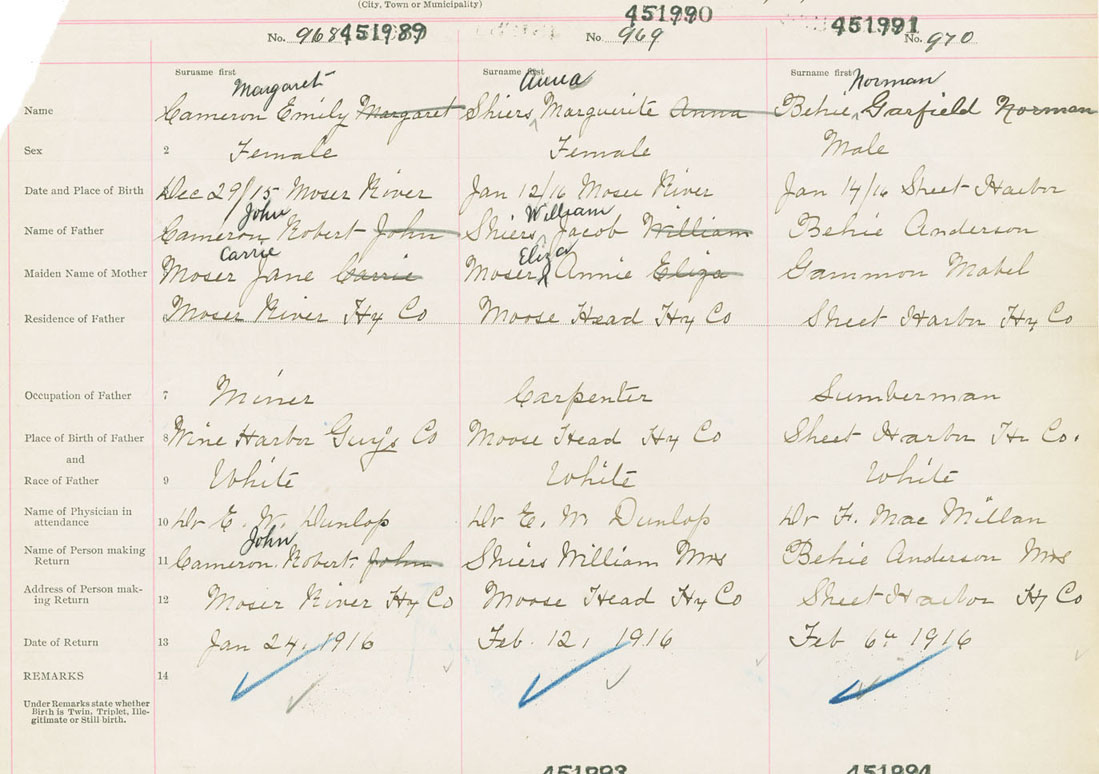 (City, Town or Municipality)
451990
No. 968 451989 No. 969 451991 No. 970
Surname first Surname first Surname first
Margaret Anna Norman
Name Cameron Emily Margaret Shiers Marguirite Anna Behie Garfield Norman
Sex 2 Female Female Male
Date and Place of Birth Dec 29/15 Moser River Jan 12/16 Moser River Jan 14/16 Sheet Harbor
John William
Name of Father Cameron Robert John Shiers Jacob William Behie Anderson
Carrie Eliza
Maiden Name of Mother Moser Jane Carrie Moser Annie Eliza Gammon Mabel
Residence of Father Moser River Hx Co Moose Head Hx Co Sheet Harbor Hx Co
Occupation of Father 7 Miner Carpenter Lumberman
Place of Birth of Father 8 Wine Harbor Guy's Co Moose Head Hx Co Sheet Harbor Hx Co.
and
Race of Father 9 White White White
Name of Physician in
attendance 10 Dr E. W. Dunlop Dr E. M Dunlop Dr F. Mac Millan
John
Name of Person making
Return 11 Cameron Robert John Shiers William Mrs Behie Anderson Mrs
Address of Person mak-
ing Return 12 Moser River Hx Co Moose Head Hx Co Sheet Harbor Hx Co
Date of Return 13 Jan 24, 1916 Feb. 12, 1916 Feb 6th 1916
REMARKS 14
Under Remarks state whether
Birth is Twin, Triplet, Ille-
gitimate or Still birth.
451993 451994